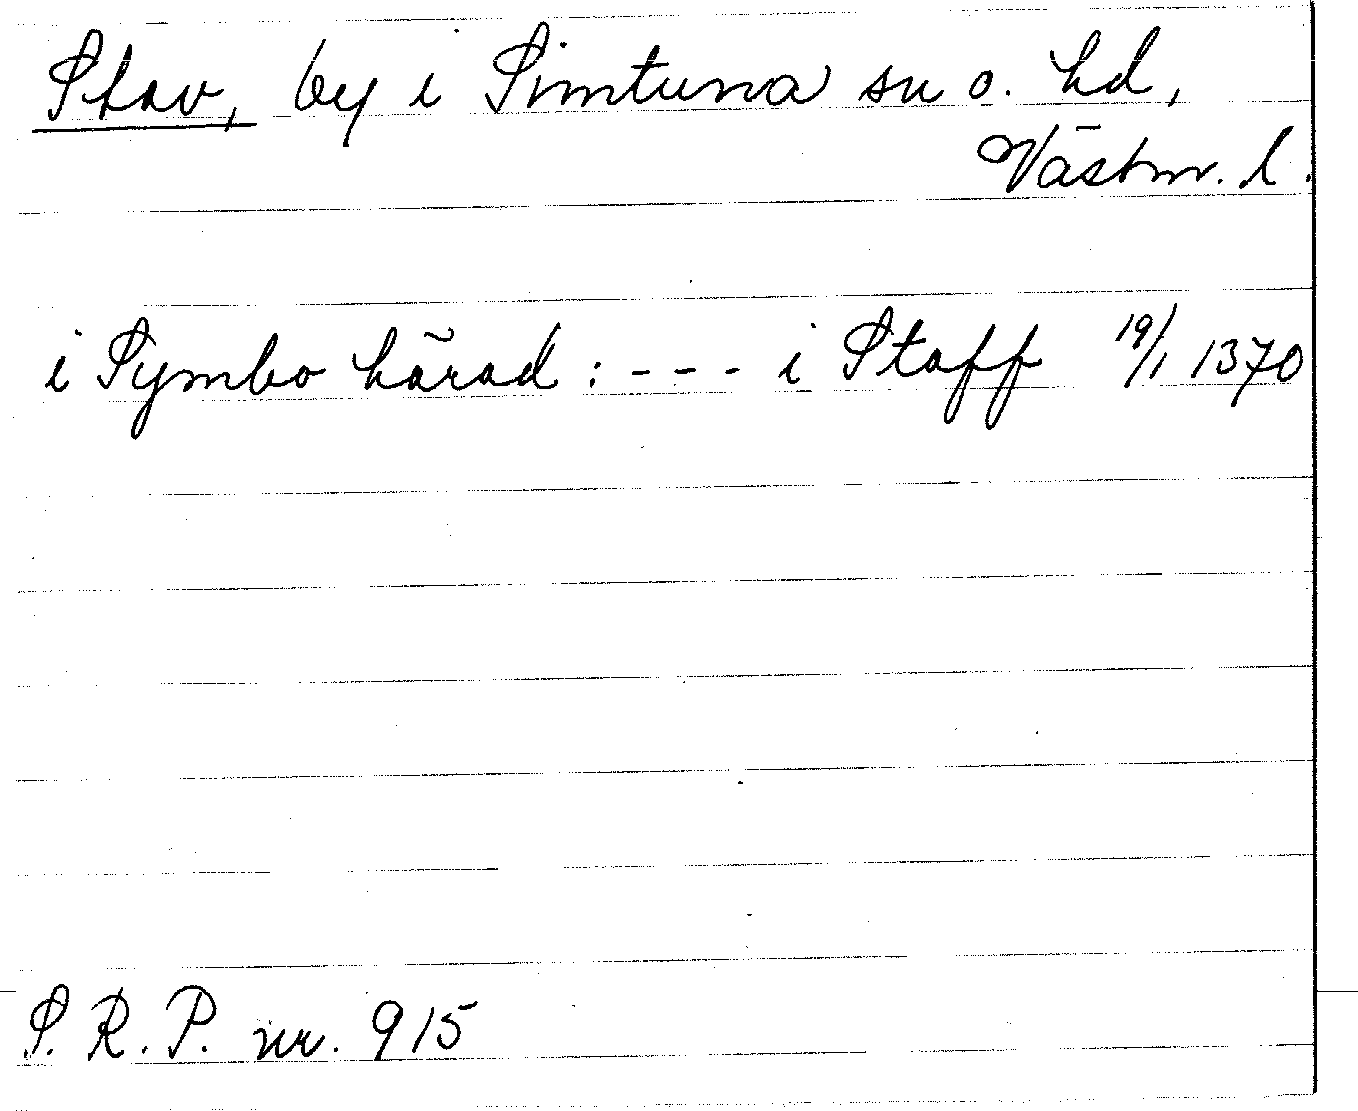 Stav, by i Simtuna sn o. hd,
Västm. l.
i Symbo härad : - - - i Staff 19/1 1370
S. R. P. nr. 915